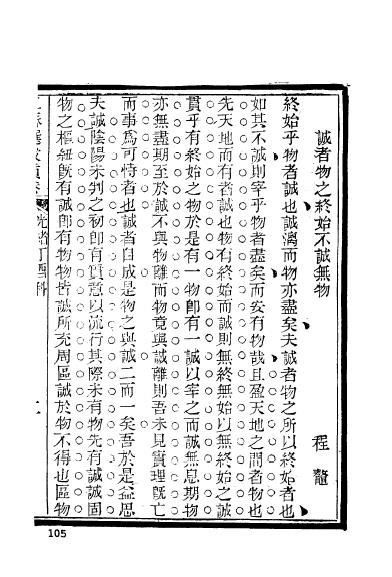 誠者物之終始不誠無物
程鼇
終始乎物者誠也誠漓而物亦盡矣夫誠者物之所以終始者也
如其不誠則宰乎物者盡矣而安有物哉且盈天地之間者物也
先天地而有者誠也物有終始而誠則無終無始以無終始之誠
貫乎有終始之物於是有一物卽有一誠以宰之而誠無息期物
亦無盡期至於誠不與物離而物竟與誠離則吾未見實理旣亡
而事爲可恃者也誠者自成是物之與誠二而一矣吾於是益思
夫誠陰陽未判之初卽有實意以流行其際未有物先有誠誠固
物之樞紐旣有誠卽有物物皆誠所充周區誠於物不得也區物
光緒丁酉科
105